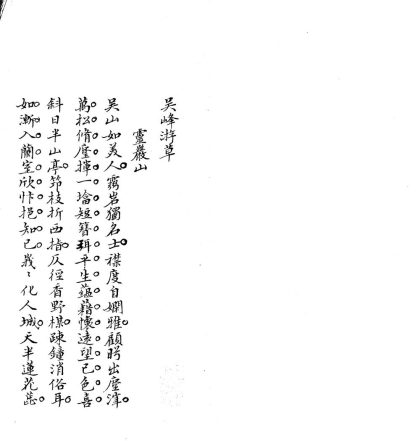 吳峰游草
靈巖山
吳山如美人靈岩獨名士襟度自嫻雅顧盻出塵滓
萬松脩麈揮一塔短簪珥平生蘊藉懷遠望已色喜
斜日半山亭笻枝折西指仄徑香野樵疎鐘消俗耳
如漸入蘭室欣忭挹知已峩〻化人城天半蓮花蕊